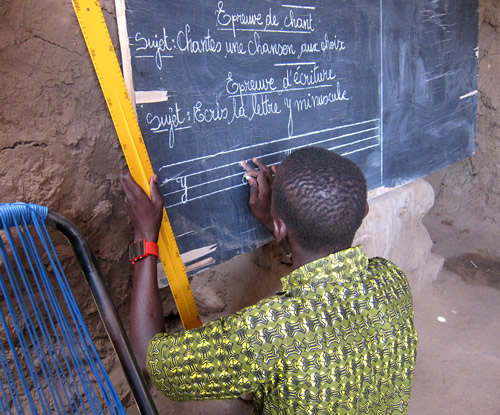 Epreuve de chant
Sujet: Chantes une chanson aux choix
Epreuve d'écriture
Sujet: Ecris la lettre y minuscule
y